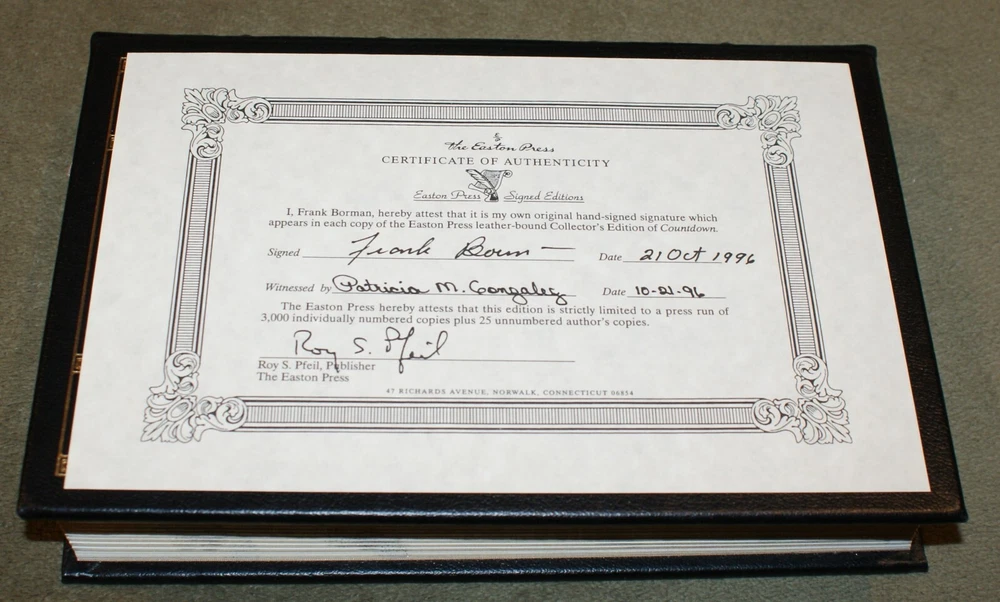 The Easton Press
CERTIFICATE OF AUTHENTICITY
Easton Press Signed Editions
I, Frank Borman, hereby attest that it is my own original hand-signed signature which
appears in each copy of the Easton Press leather-bound Collector's Edition of Countdown.
Signed Frank Borman Date 21 Oct 1996
Witnessed by Patricia M. Gonzalez Date 10-21-96
The Easton Press hereby attests that this edition is strictly limited to a press run of
3,000 individually numbered copies plus 25 unnumbered author's copies.
Roy S. Pfeil
Roy S. Pfeil, Publisher
The Easton Press
47 RICHARDS AVENUE, NORWALK, CONNECTICUT 06854